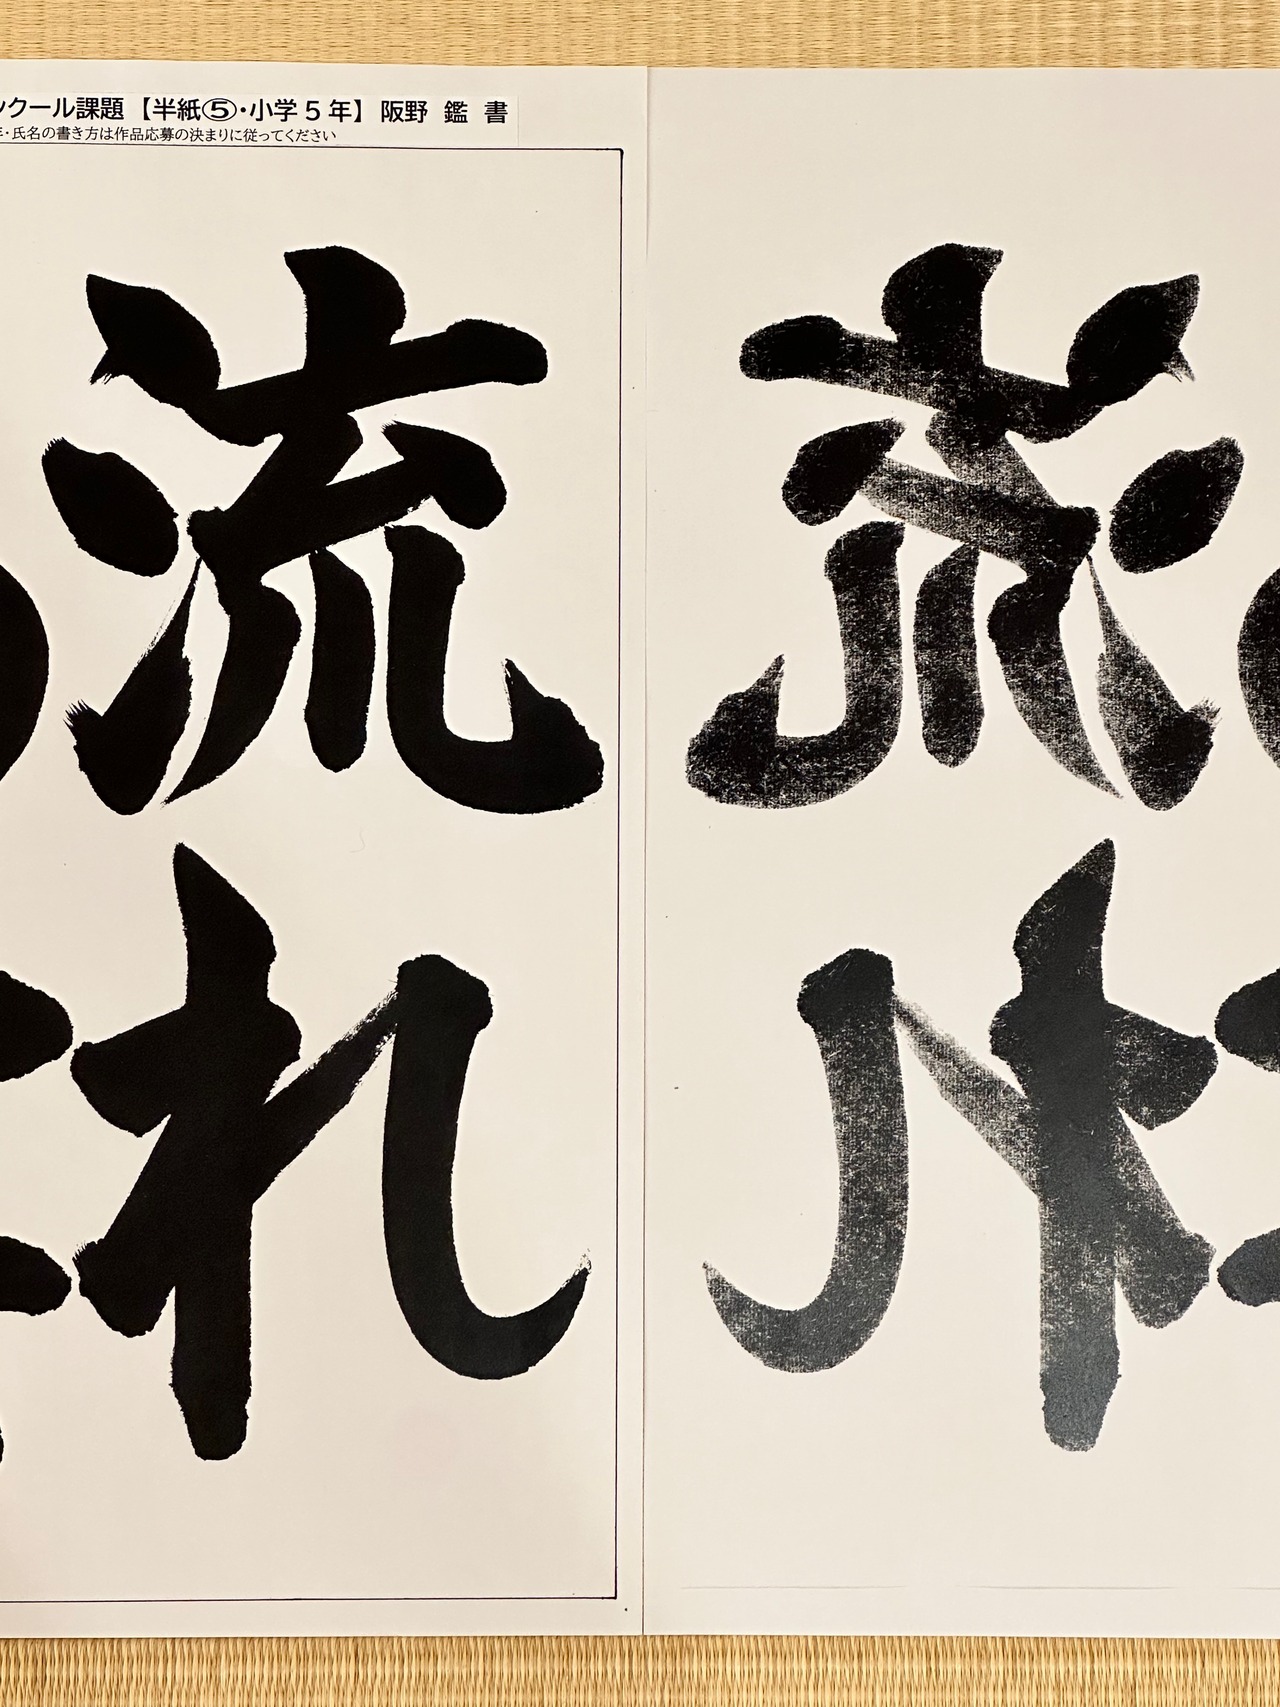 ンクール課題【半紙⑤・小学5年】 阪野 鑑 書
・氏名の書き方は作品応募の決まりに従ってください
流れ